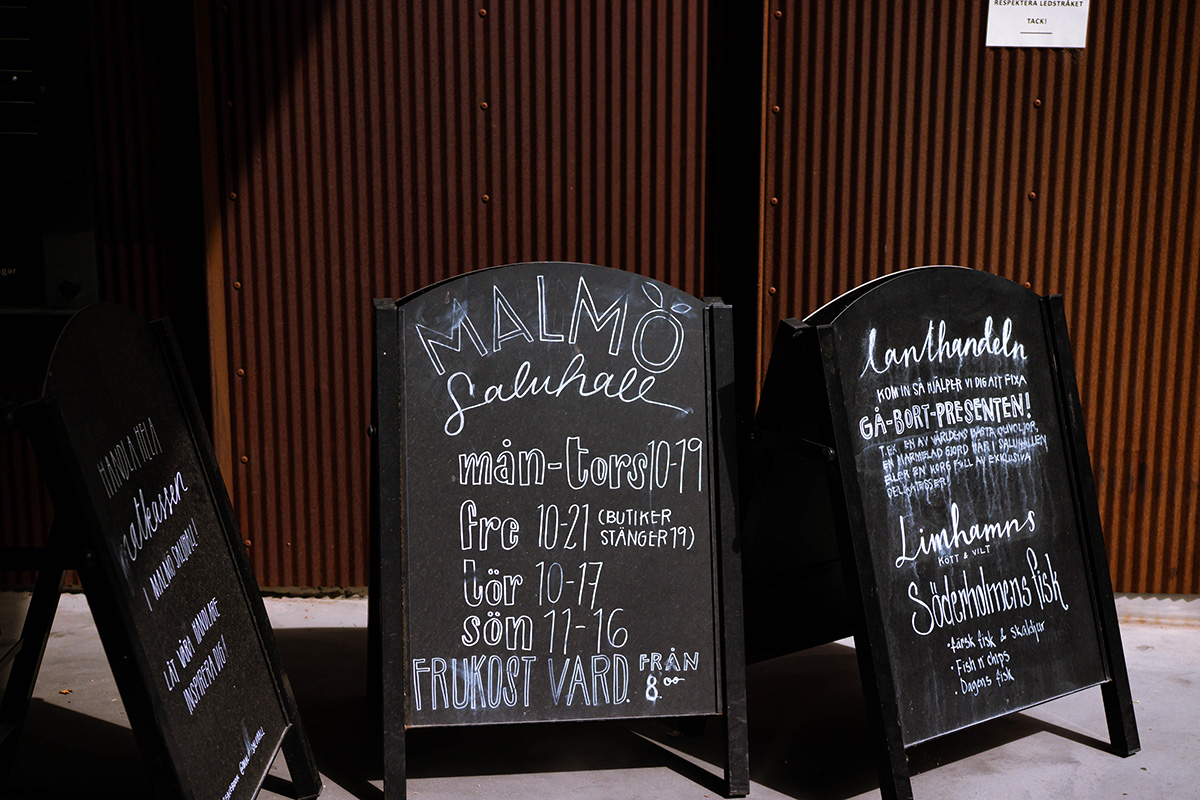 RESPEKTERA LEDSTRÅKET
TACK!
HANDLA HELA
matkassen
I MALMÖ SALUHALL!
LÅT VÅRA HANDLARE
INSPIRERA DIG!
MALMÖ
Saluhall
mån-tors 10-19
fre 10-21 (BUTIKER
STÄNGER 19)
tör 10-17
sön 11-16
FRUKOST VARD. FRÅN
8.00
Lanthandeln
KOM IN SÅ HJÄLPER VI DIG ATT FIXA
GÅ-BORT-PRESENTEN!
T.EX. EN AV VÄRLDENS BÄSTA OLIVOLJOR,
EN MARMELAD GJORD HÄR I SALUHALLEN
ELLER EN KORG FYLL AV EXKLUSIVA
DELIKATESSER!
Limhamns
KÖTT & VILT
Söderholmens fisk
•färsk fisk & skaldjur
• Fish n' chips
• Dagens fisk